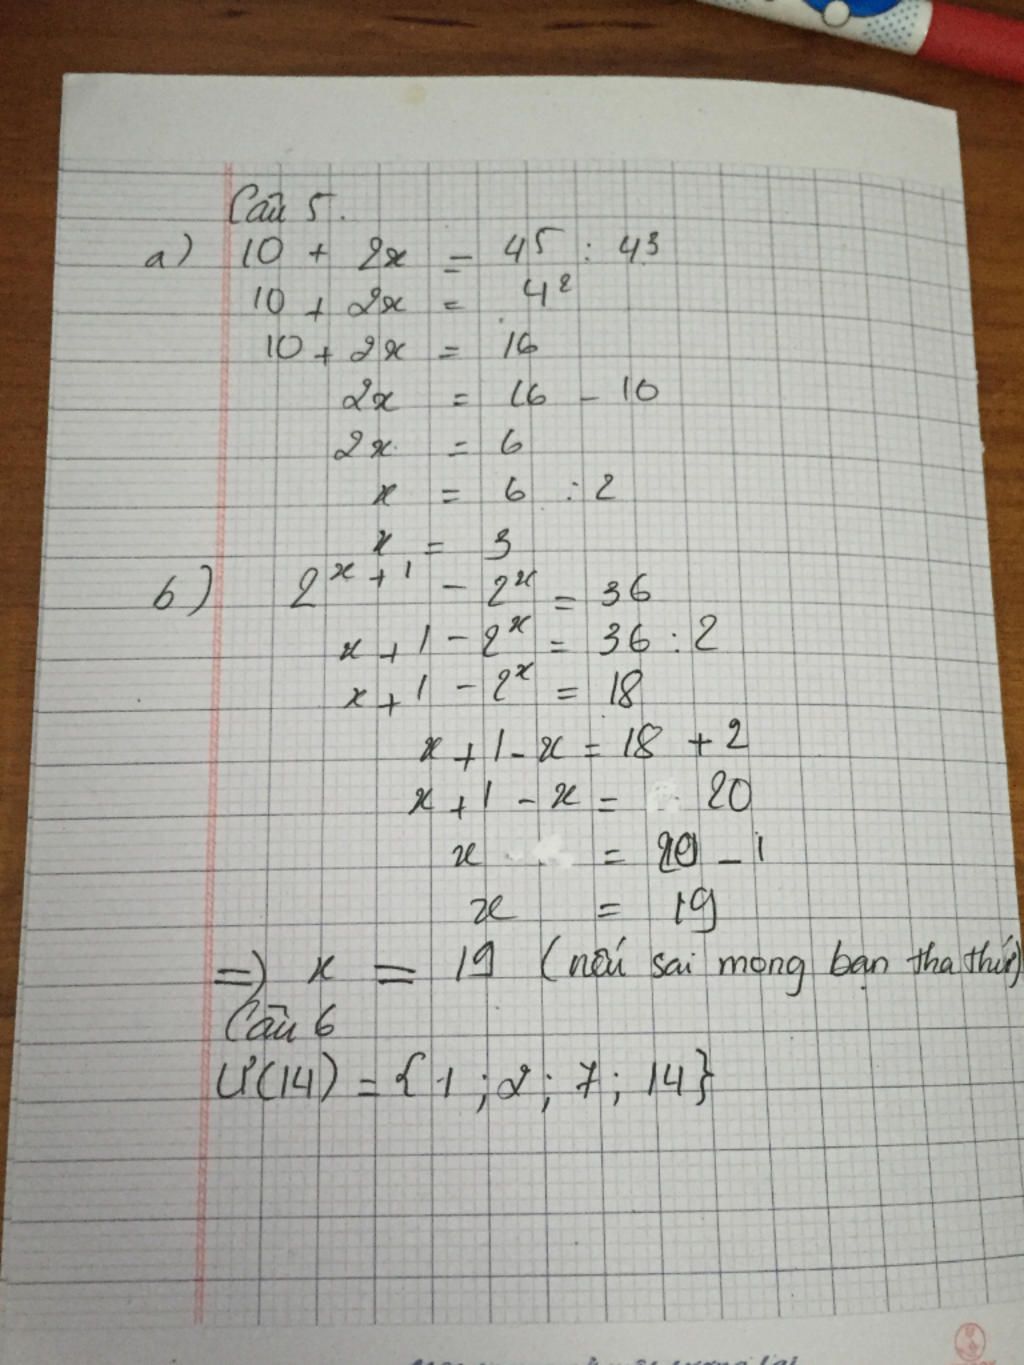 Câu 5.
a) 10 + 2x = 4⁵ : 4³
10 + 2x = 4²
10 + 2x = 16
2x = 16 - 10
2x = 6
x = 6 : 2
x = 3
b) 2ˣ⁺¹ - 2ˣ = 36
x + 1 - 2ˣ = 36 : 2
x + 1 - 2ˣ = 18
x + 1 - x = 18 + 2
x + 1 - x = 20
x = 20 - 1
x = 19
=) x = 19 (nếu sai mong bạn tha thứ)
Câu 6
Ư(14) = {1 ; 2 ; 7 ; 14}